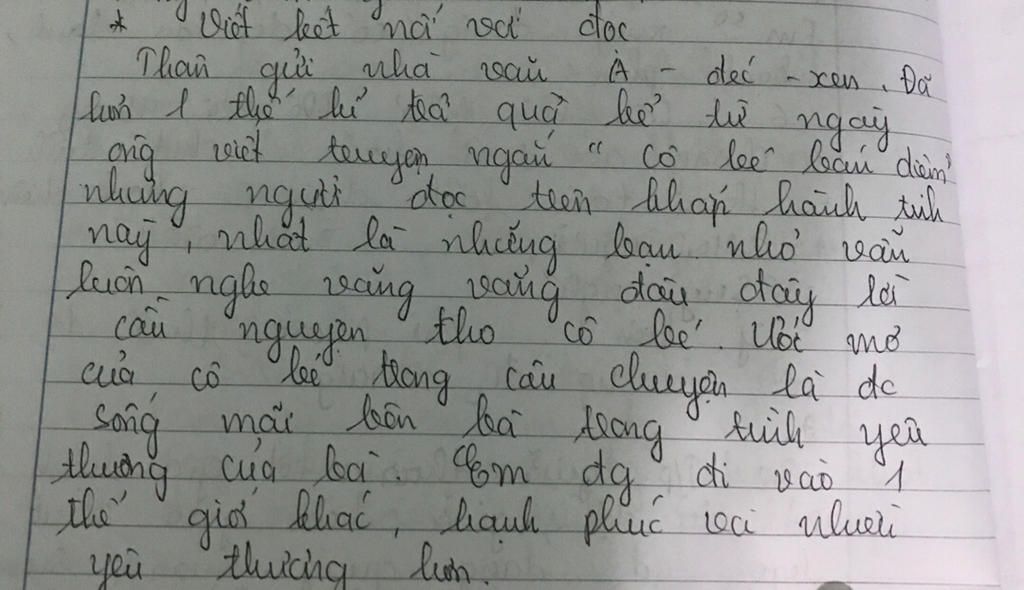 * Viết kết nối với đọc
Thân gửi nhà văn À - đéc - xen. Đã
hơn 1 thế kỉ trôi qua kể từ ngày
ông viết truyện ngắn " Cô bé bán diêm"
những người đọc trên khắp hành tinh
này, nhất là những bạn nhỏ vẫn
luôn nghe văng vẳng đâu đây lời
cầu nguyện cho cô bé. Ước mơ
của cô bé trong câu chuyện là đc
sống mãi bên bà trong tình yêu
thương của bà. Em đg đi vào 1
thế giới khác, hạnh phúc và nhiều
yêu thương hơn.